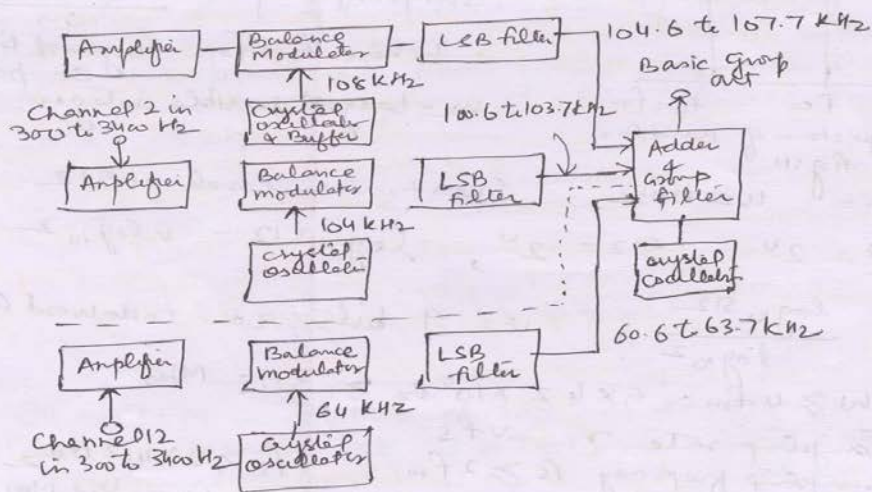 Amplifier
Balance
Modulator
LSB filter
104.6 to 107.7 KHz
Basic Group
out
108 KHz
Channel 2 in
300 to 3400 Hz
Crystal
oscillator
& Buffer
100.6 to 103.7 KHz
Amplifier
Balance
modulator
LSB
filter
Adder
&
Group
filter
104 KHz
Crystal
oscillator
Crystal
oscillator
60.6 to 63.7 KHz
Amplifier
Balance
modulator
LSB
filter
64 KHz
Channel 12
in 300 to 3400 Hz
Crystal
oscillator